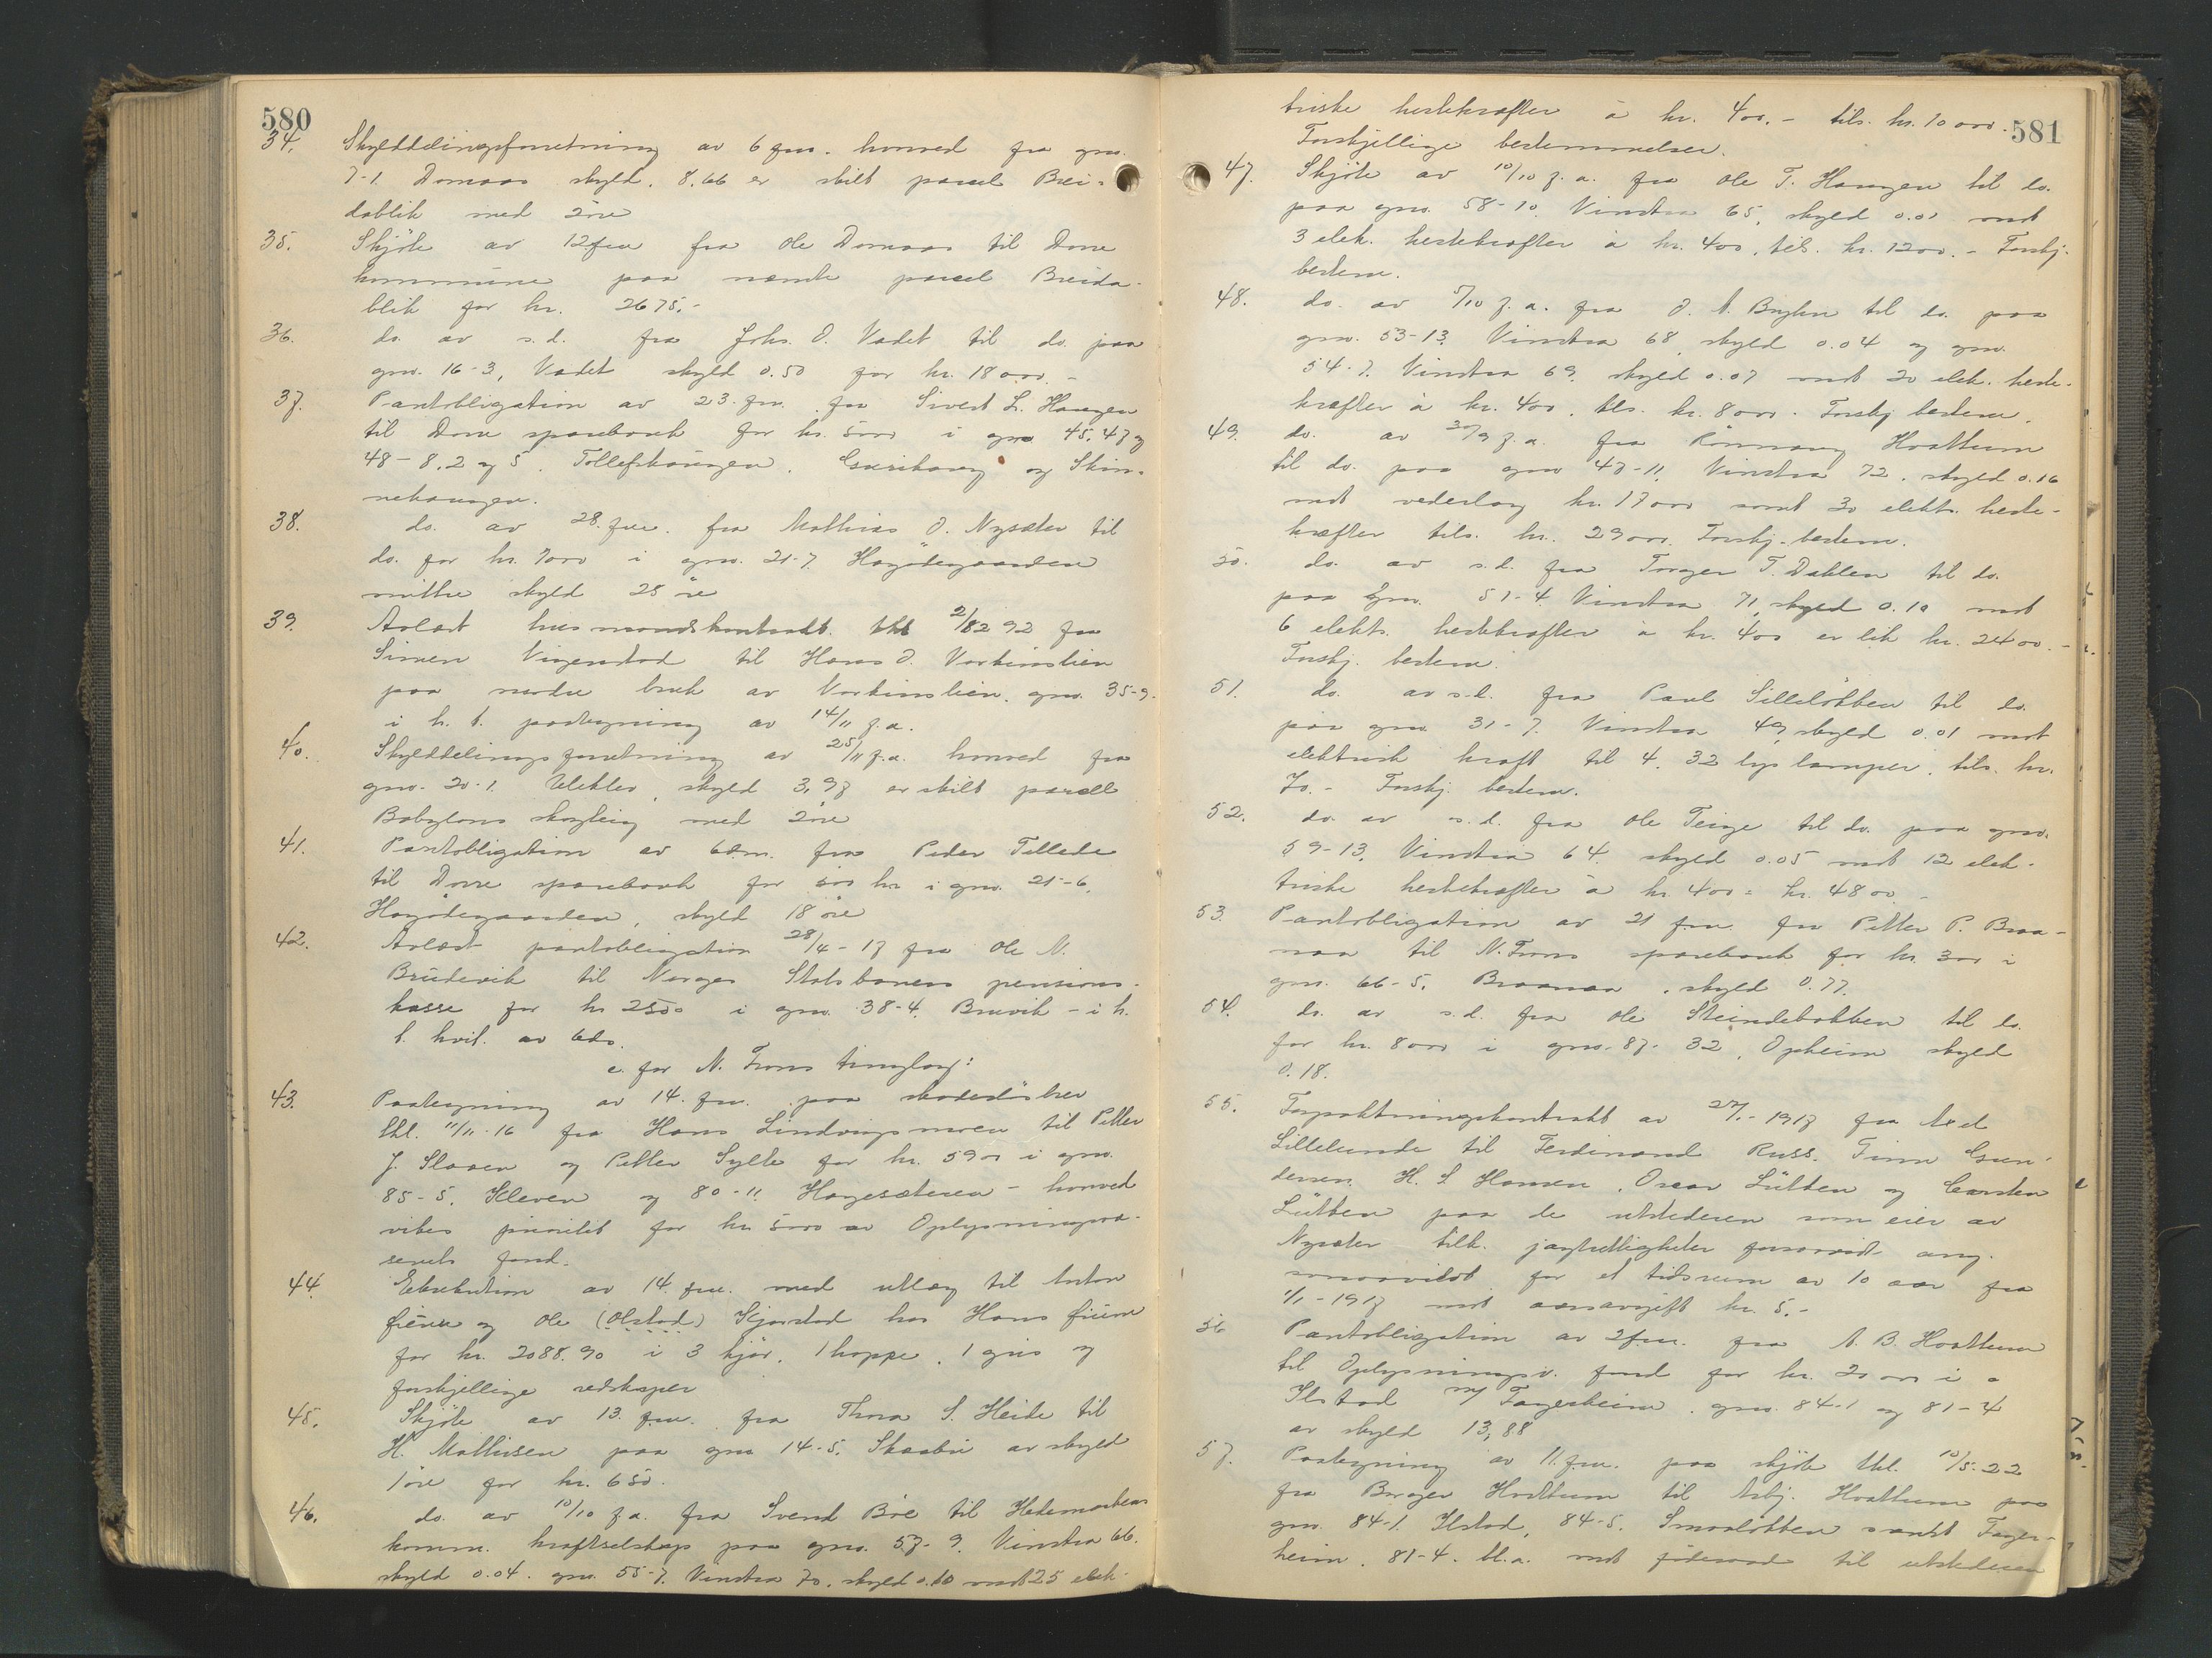 580
34. Skylddelingsforretning av 6 fm. hvorved fra gnr.
7-1. Domaas skyld. 8.66 er skilt parcel Brei-
dablik med 2 øre
35. Skjöte av 12 fm fra Ole Domaas til Dovre
kommune paa nævnte parcel Breida-
blik for hr. 2675.-
36. do. av s.d. fra Johs. O. Vadet til do. paa
gnr. 16-3, Vadet skyld 0.50 for kr. 18000.-
37. Pantobligation av 23. fm. fra Sivert L. Haugen
til Dovre sparebank for kr. 5000 i gnr 45. 47 og
48-8, 2 og 5. Tollefshaugen. Gurihaug og Skin-
nehaugen.
38. do. av 28. fm. fra Mathias O. Nysæter til
do. for kr. 7000 i gnr. 21-7. Høgödegaarden
mittre skyld 25 øre
39. Avlæst husmandskontrakt thl 2/12 92 fra
Simen Vigenstad til Hans O. Vorkinslien
paa nordre bruk av Vorkinslien. gnr. 35-9.
i h. t. paategning av 14/11 f.a.
40. Skylddelingsforretning av 25/11 f.a. hvorved fra
gnr. 20-1. Ulekleiv, skyld 3,97 er skilt parcell
Babylons skogteig med 2 øre
41. Pantobligation av 6 dm. fra Peder Tellede
til Dovre sparebank for 500 kr i gnr. 21-6.
Høgödegaarden, skyld 18 øre
42. Avlæst pantobligation 28/4-17 fra Ole N.
Brudevik til Norges Statsbaners pensions-
kasse for kr 2500 i gnr. 38-4. Bruvik - i h.
t. kvit. av 6 ds.
c. for N. Frons tinglag:
43. Paategning av 14. fm. paa skadesløsbrev
thl. 11/11-16 fra Hans Lindvigsmoen til Petter
J. Slaaen og Petter Sylte for kr. 5900 i gnr.
85-5. Kleven og 80-11 Hagesæteren - hvorved
vikes prioritet for kr 5000 av Oplysningsvæ-
senets fond.
44. Exekution av 14. fm. med utlæg til Anton
Friis og Ole (Olstad) Kjørstad hos Hans Friis
for kr. 2088.90 i 3 kjør, 1 hoppe, 1 gris og
forskjellige redskaper
45. Skjöte av 13. fm. fra Thora S. Heide til
H. Mathisen paa gnr 14-5. Skaabu av skyld
1 øre for kr. 650.
46. do. av 10/10 f.a. fra Svend Böe til Hedemarkens
komm. kraftselskap paa gnr. 57-9. Vinstra 66.
skyld 0.04. gnr. 55-7. Vinstra 70. skyld 0.10 mot 25 elek-
581
triske hestekrafter à kr. 400.- tils. kr. 10000.
Forskjellige bestemmelser.
47. Skjöte av 10/10 f.a. fra Ole T. Haugen til do.
paa gnr. 58-10. Vinstra 65, skyld 0.01 mot
3 elek. hestekrafter à kr. 400. tils. kr. 1200.- Forskj.
bestem.
48. do. av 5/10 f.a. fra O. A. Bryhn til do. paa
gnr. 53-13. Vinstra 68, skyld 0.04 og gnr.
54-7. Vinstra 69. skyld 0.07 mot 20 elek. heste-
krafter à kr. 400. tils. kr. 8000. Forskj bestem.
49. do. av 30/9 f.a. fra Rönnaug Hvattum
til do. paa gnr 47-11. Vinstra 72. skyld 0.16
mot vederlag kr. 17000 samt 30 elektr. heste-
krafter tils. kr. 29000. Forskj. bestem.
50. do. av s.d. fra Torger T. Dahlen til do.
paa gnr. 51-4. Vinstra 71, skyld 0.10 mot
6 elektr. hestekrafter à kr. 400 er lik kr. 2400.-
Forskj. bestem.
51. do. av s.d. fra Paul Sillelökken til do.
paa gnr 31-7. Vinstra 49, skyld 0.01 mot
elektrisk kraft til 4. 32 lys lamper. tils. kr.
70.- Forskj. bestem.
52. do. av s.d. fra Ole Teige til do. paa gnr.
59-13. Vinstra 64. skyld 0.05 mot 12 elek-
triske hestekrafter à kr. 400 = kr. 4800.-
53. Pantobligation av 21 fm. fra Petter P. Braa-
naa til N. Frons sparebank for kr. 300 i
gnr. 66-5. Braanaa. skyld 0.77.
54. do. av s.d. fra Ole Steindebakken til do.
for kr. 8000 i gnr. 87-32, Opheim skyld
0.18.
55. Forpaktningskontrakt av 27/1-1917 fra Axel
Lillelunde til Ferdinand Russ. Finn Gun-
dersen. H. S. Hansen, Oscar Lütken og Carsten
Lütken paa de utstederen som eier av
Nysæter tilh. jagtrettigheter forsaavidt ang.
smaavildt for et tidsrum av 10 aar fra
1/1-1917 mot aarsavgift kr. 5.-
56 Pantobligation av 2 fm. fra A. B. Hvattum
til Oplysningsv. fond for kr. 20000 i
Ilstad m/ Fagerheim. gnr. 84-1 og 81-4
av skyld 13,88
57. Paategning av 11. fm. paa skjöte thl. 10/5-22
fra Borger Hvattum til Asbj. Hvattum paa
gnr. 84-1. Ilstad, 84-5. Smaalökken samt Fager-
heim. 81-4. bl.a. mot föderaad til utstederen